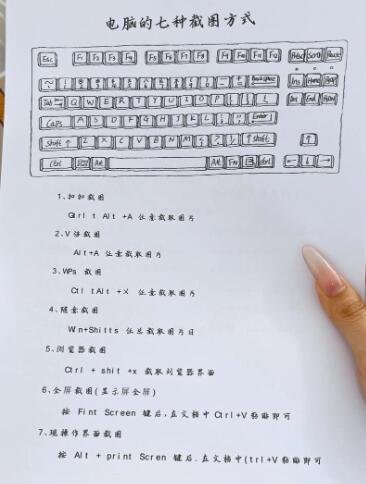 电脑的七种截图方式
Esc F1 F2 F3 F4 F5 F6 F7 F8 F9 F10 F11 F12
Backspace Ins Home
Tab Q W E R T Y U I O P
Caps A S D F G H J K L Enter
Shift ↑ Z X C V B N M Shift ↑
Ctrl Alt Alt Fn Ctrl ← ↓ →
1、扣扣截图
Qtrl t Alt +A 任意截取图片
2、V信截图
Alt+A 任意截取图片
3、WPs 截图
Ctl tAlt +X 任意截取图片
4、随意截图
Wn+Shitts 任意截取图片日
5、浏览器截图
Ctrl + shit +x 截取浏览器界面
6、全屏截图(显示屏全屏)
按 Fint Screen 键后,在文档中Ctrl+V黏贴即可
7、现操作界面截图
按 Alt + print Scren 键后.在文档中(trl+V黏贴即可